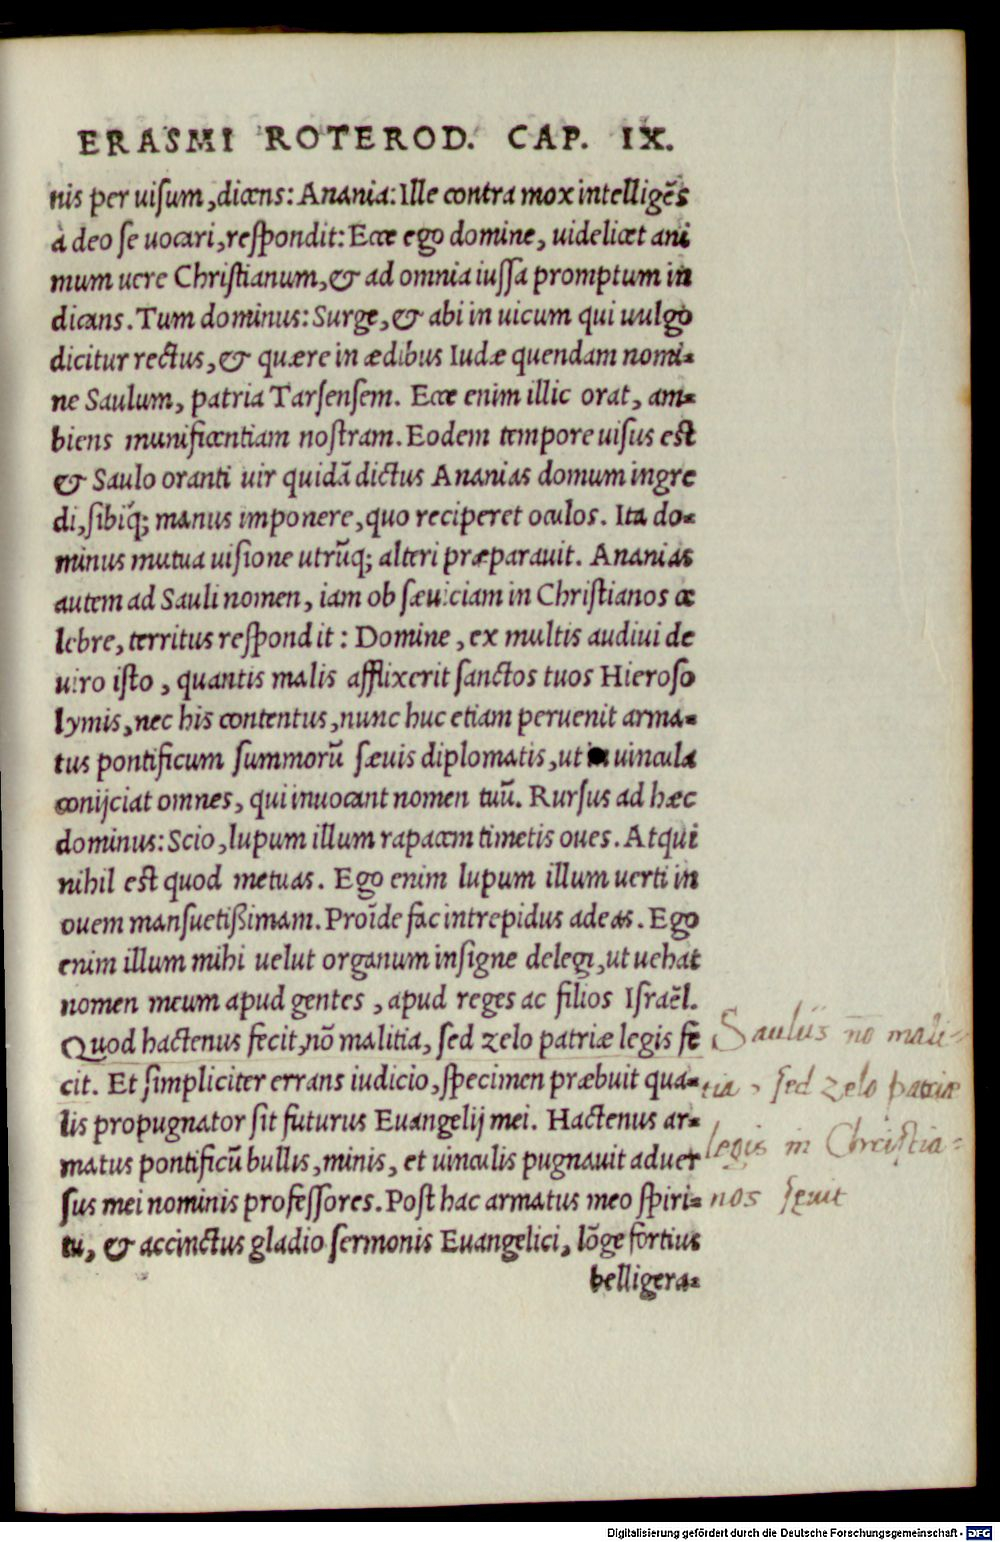 ERASMI ROTEROD. CAP. IX.
nis per uiſum, dicens: Anania: Ille contra mox intelligẽs
à deo ſe uocari, reſpondit: Ecce ego domine, uidelicet ani
mum uere Chriſtianum, & ad omnia iuſſa promptum in
dicans. Tum dominus: Surge, & abi in uicum qui uulgo
dicitur rectus, & quære in ædibus Iudæ quendam nomi-
ne Saulum, patria Tarſenſem. Ecce enim illic orat, am-
biens munificentiam noſtram. Eodem tempore uiſus eſt
& Saulo oranti uir quidã dictus Ananias domum ingre
di, ſibiq́; manus imponere, quo reciperet oculos. Ita do-
minus mutua uiſione utrũq; alteri præparauit. Ananias
autem ad Sauli nomen, iam ob ſæuiciam in Chriſtianos ce
lebre, territus reſpondit: Domine, ex multis audiui de
uiro iſto, quantis malis afflixerit ſanctos tuos Hieroſo
lymis, nec his contentus, nunc huc etiam peruenit arma-
tus pontificum ſummorũ ſæuis diplomatis, ut in uincula
conijciat omnes, qui inuocant nomen tuũ. Rurſus ad hæc
dominus: Scio, lupum illum rapacem timetis oues. Atqui
nihil eſt quod metuas. Ego enim lupum illum uerti in
ouem manſuetißimam. Proĩde fac intrepidus adeas. Ego
enim illum mihi uelut organum inſigne delegi, ut uehat
nomen meum apud gentes, apud reges ac filios Iſraẽl.
Quod hactenus fecit, nõ malitia, ſed zelo patriæ legis fe
cit. Et ſimpliciter errans iudicio, ſpecimen præbuit qua-
lis propugnator ſit futurus Euangelij mei. Hactenus ar-
matus pontificũ bullis, minis, et uinculis pugnauit aduer
ſus mei nominis profeſſores. Poſt hac armatus meo ſpiri-
tu, & accinctus gladio ſermonis Euangelici, lõge fortius
belligera-
Saulus nō mali-
tia, ſed zelo patriæ
legis in Chriſtia-
nos ſęuit
Digitalisierung gefördert durch die Deutsche Forschungsgemeinschaft - DFG